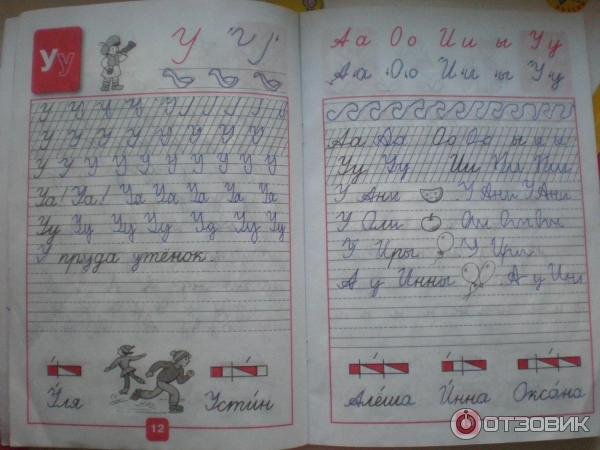 Уу
У
У У У У У
У У У У У У У
У У У У У У У У У
Уа! Уа! Уа Уа Уа Уа
Уу Уу Уу Уу Уу Уу Уу
У пруда утёнок.
У́ля
Усти́н
12
Аа Оо Ии ы Уу
Аа Оо Ии ы Уу
Аа Аа Оо Оо ы ы ы
Уу Уу Ии Ии Ии
У Ани У Ани У Ани
У Оли
У Иры У
А у Инны А у Инн
Алёша
И́нна
Окса́на
ОТЗОВИК